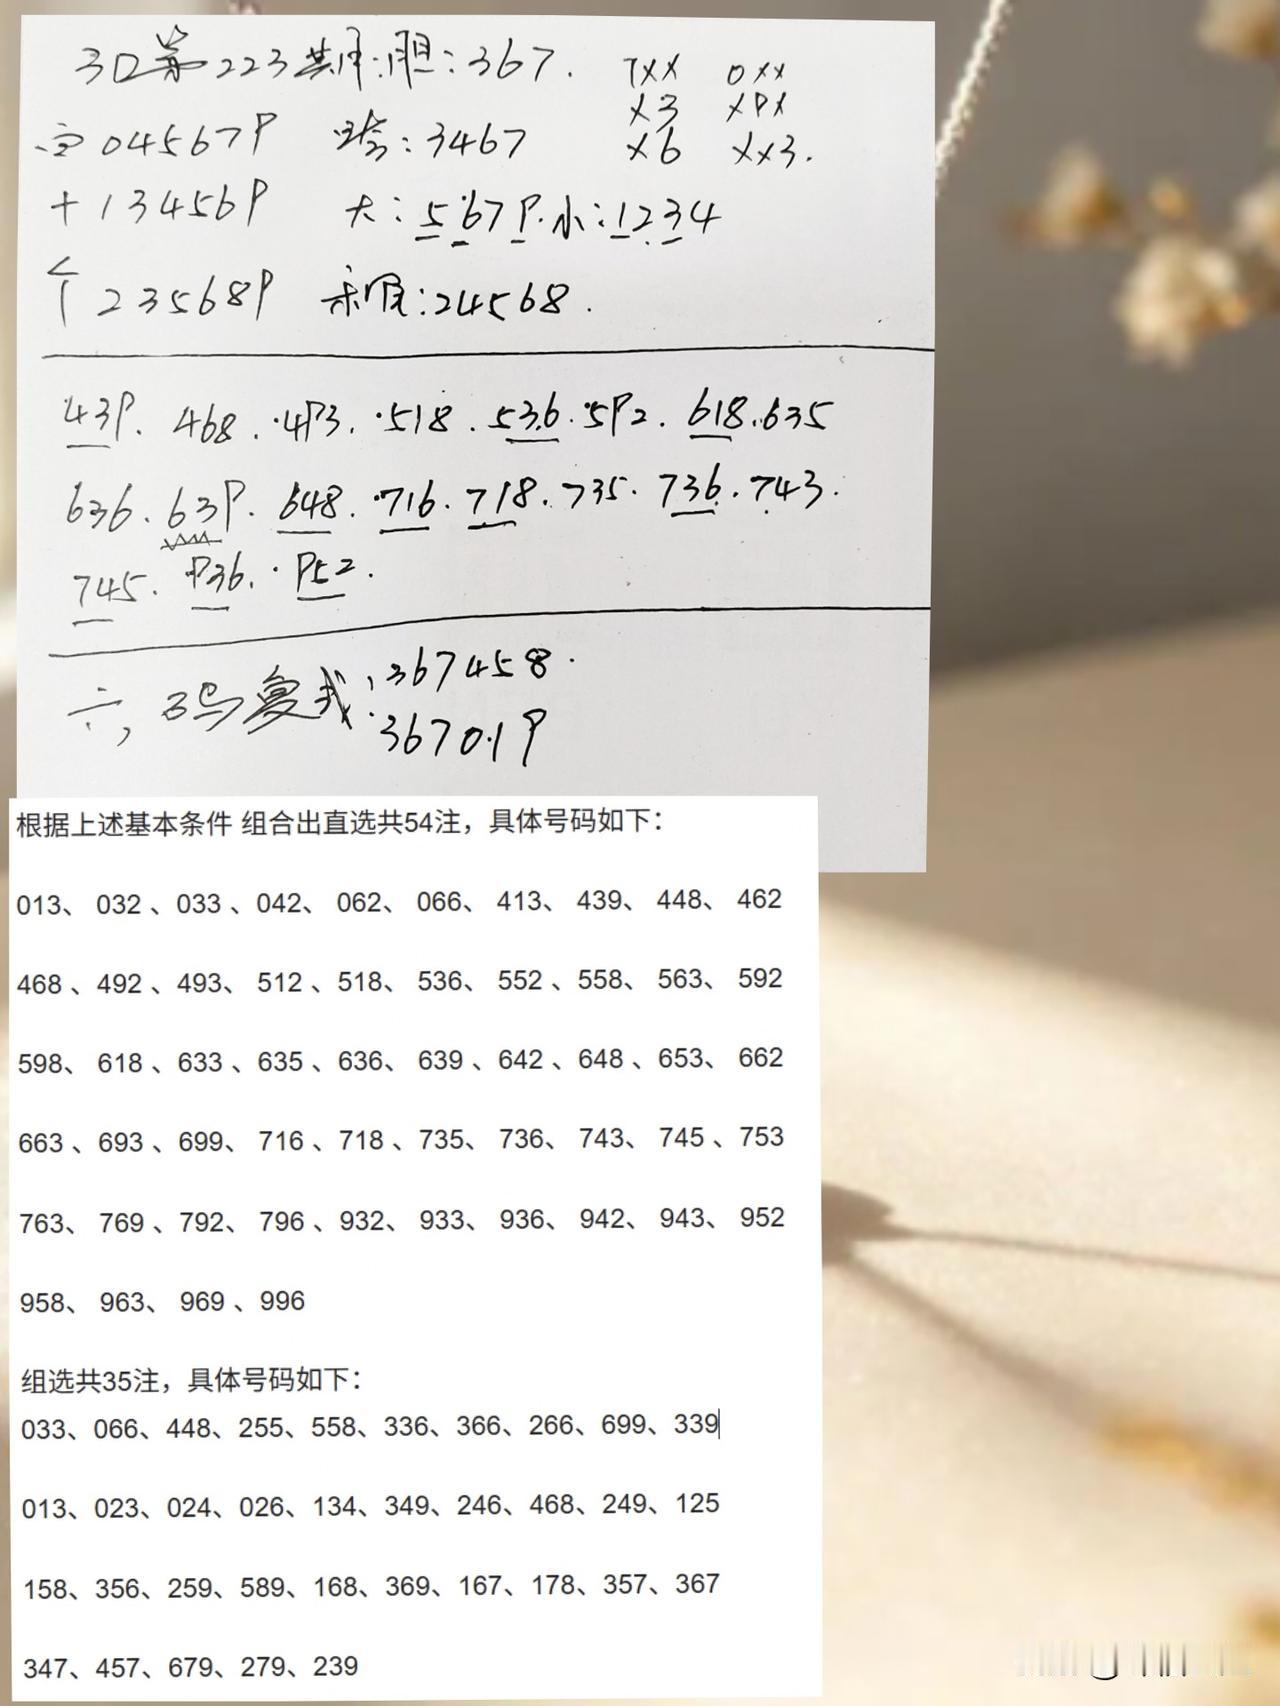 3D第223期:胆:367. 7xx 0xx
x3 x9x
百045679 跨:3467 x6 xx3.
十134569 大:5679.小:1234
个235689 和尾:24568.
439. 468. 493. 518. 536. 592. 618. 635
636. 639. 648. 716. 718. 735. 736. 743.
745. 936. 952.
六,3码复式:367458.
367019
根据上述基本条件 组合出直选共54注，具体号码如下：
013、 032 、033 、042、 062、 066、 413、 439、 448、 462
468 、492 、493、 512 、518、 536、 552 、558、 563、 592
598、 618 、633 、635 、636、 639 、642 、648 、653、 662
663 、693 、699、 716 、718 、735、 736、 743、 745 、753
763、 769 、792、 796 、932、 933、 936、 942、 943、 952
958、 963、 969 、996
组选共35注，具体号码如下：
033、066、448、255、558、336、366、266、699、339
013、023、024、026、134、349、246、468、249、125
158、356、259、589、168、369、167、178、357、367
347、457、679、279、239